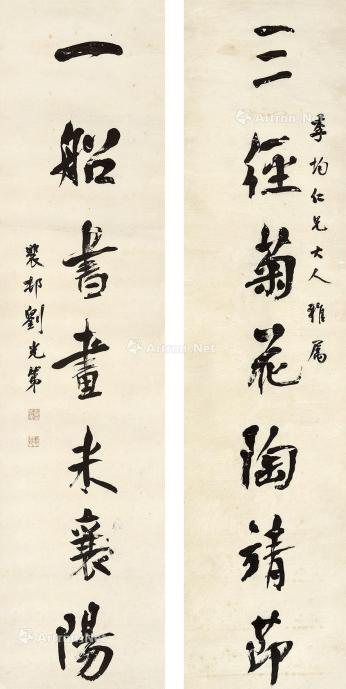 三徑菊花陶靖節
季均仁兄大人雅屬
一船書畫米襄陽
裴邨劉光第
Artron.Net
Artron.Net
Artron.Net
Artron.Net